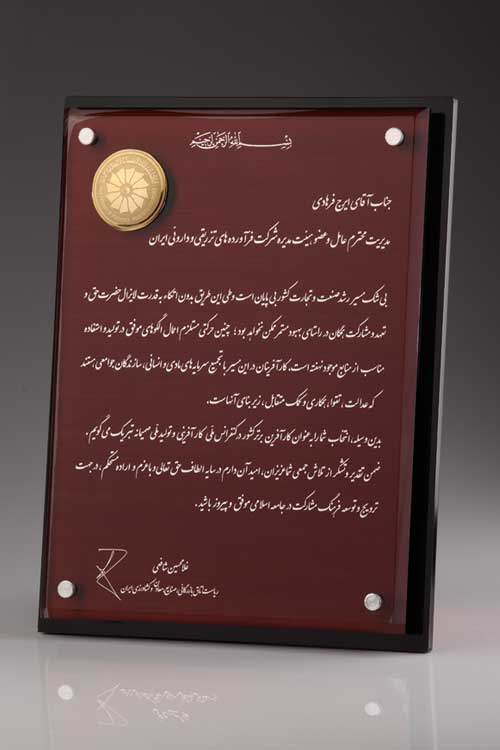 بسم الله الرحمن الرحیم
جناب آقای ایرج فرهادی
مدیریت محترم عامل و عضو هیئت مدیره شرکت فرآورده های تزریقی و دارویی ایران
بی شک مسیر رشد صنعت و تجارت کشور بی پایان است و طی این طریق بدون اتکاء به قدرت لایزال حضرت حق و
تعهد و مشارکت همگان در راستای بهبود مستمر ممکن نخواهد بود؛ چنین حرکتی مستلزم اعمال الگوهای موفق در تولید و استفاده
مناسب از منابع موجود نهفته است. کارآفرینان در این مسیر با تجمیع سرمایه های مادی و انسانی، سازندگان جوامعی هستند
که عدالت، تقوا، همکاری و کمک متقابل، زیر بنای آنهاست.
بدین وسیله، انتخاب شما را به عنوان کارآفرین برتر کشور در کنفرانس ملی کارآفرینی و تولید ملی صمیمانه تبریک می گویم.
ضمن تقدیر و تشکر از تلاش جمعی شما عزیزان، امید آن دارم در سایه الطاف حق تعالی و با عزم و اراده مستحکم، در جهت
ترویج و توسعه فرهنگ مشارکت در جامعه اسلامی موفق و پیروز باشید.
غلامحسین شافعی
ریاست اتاق بازرگانی، صنایع، معادن و کشاورزی ایران